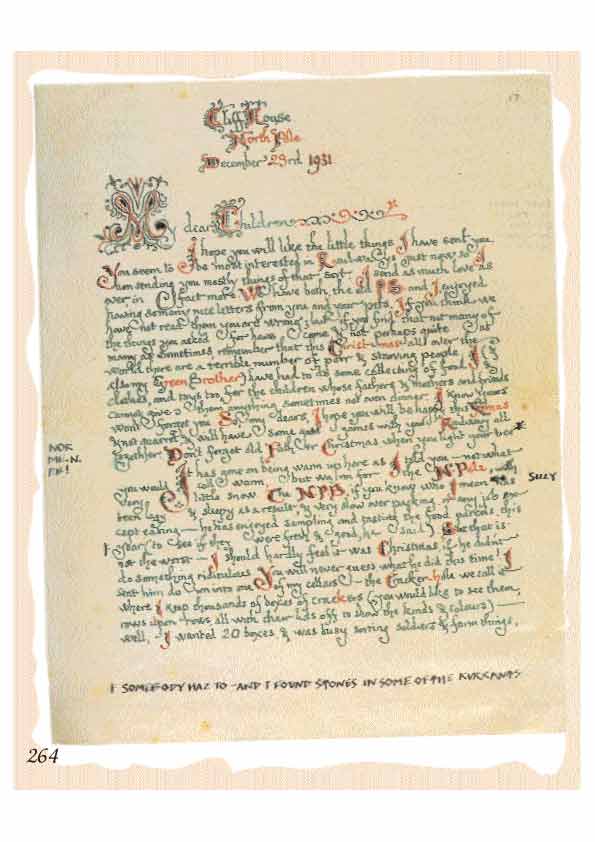 Cliff House
North Pole
December 23rd 1931
My dear Children
I hope you will like the little things I have sent you
You seem to be most interested in Railways just now, so I
am sending you mostly things of that sort. I send as much love as
ever in fact more. We have both, the old PB and I enjoyed
having so many nice letters from you and your pets. If you think we
have not read them you are wrong; but if you find that not many of
the things you asked for have come & not perhaps quite as
many as sometimes remember that this Christmas all over the
world there are a terrible number of poor & starving people. I (&
also my Green Brother) have had to do some collecting of food, &
clothes, and toys too for the children whose fathers & mothers and friends
cannot give them anything sometimes not even dinner. I know yours
won't forget you. So my dears I hope you will be happy this Xmas
& not quarrel & will have some good games with your Railway all
together. Don't forget old Father Christmas when you light your tree
It has gone on being warm up here as I told you — not what
NOR
ME.N.
FR!
you would call warm, but warm for the N Pole, with
very little snow. The NPB, if you know who I mean has
SILLY
been lazy & sleepy as a result & very slow over packing or any job ex-
cept eating — he has enjoyed sampling and tasting the food parcels this
year (to see if they were fresh & good, he said). But that is
not the worst — I should hardly feel it was Christmas if he didn't
do something ridiculous. You will never guess what he did this time! I
sent him down into one of my cellars — the Cracker-hole we call it
where I keep thousands of boxes of crackers (you would like to see them,
rows upon rows all with their lids off to show the kinds & colours) —
well, I wanted 20 boxes & was busy sorting soldiers & farm things,
SOMEBODY HAZ TO — AND I FOUND STONES IN SOME OF THE KURRANTS
264